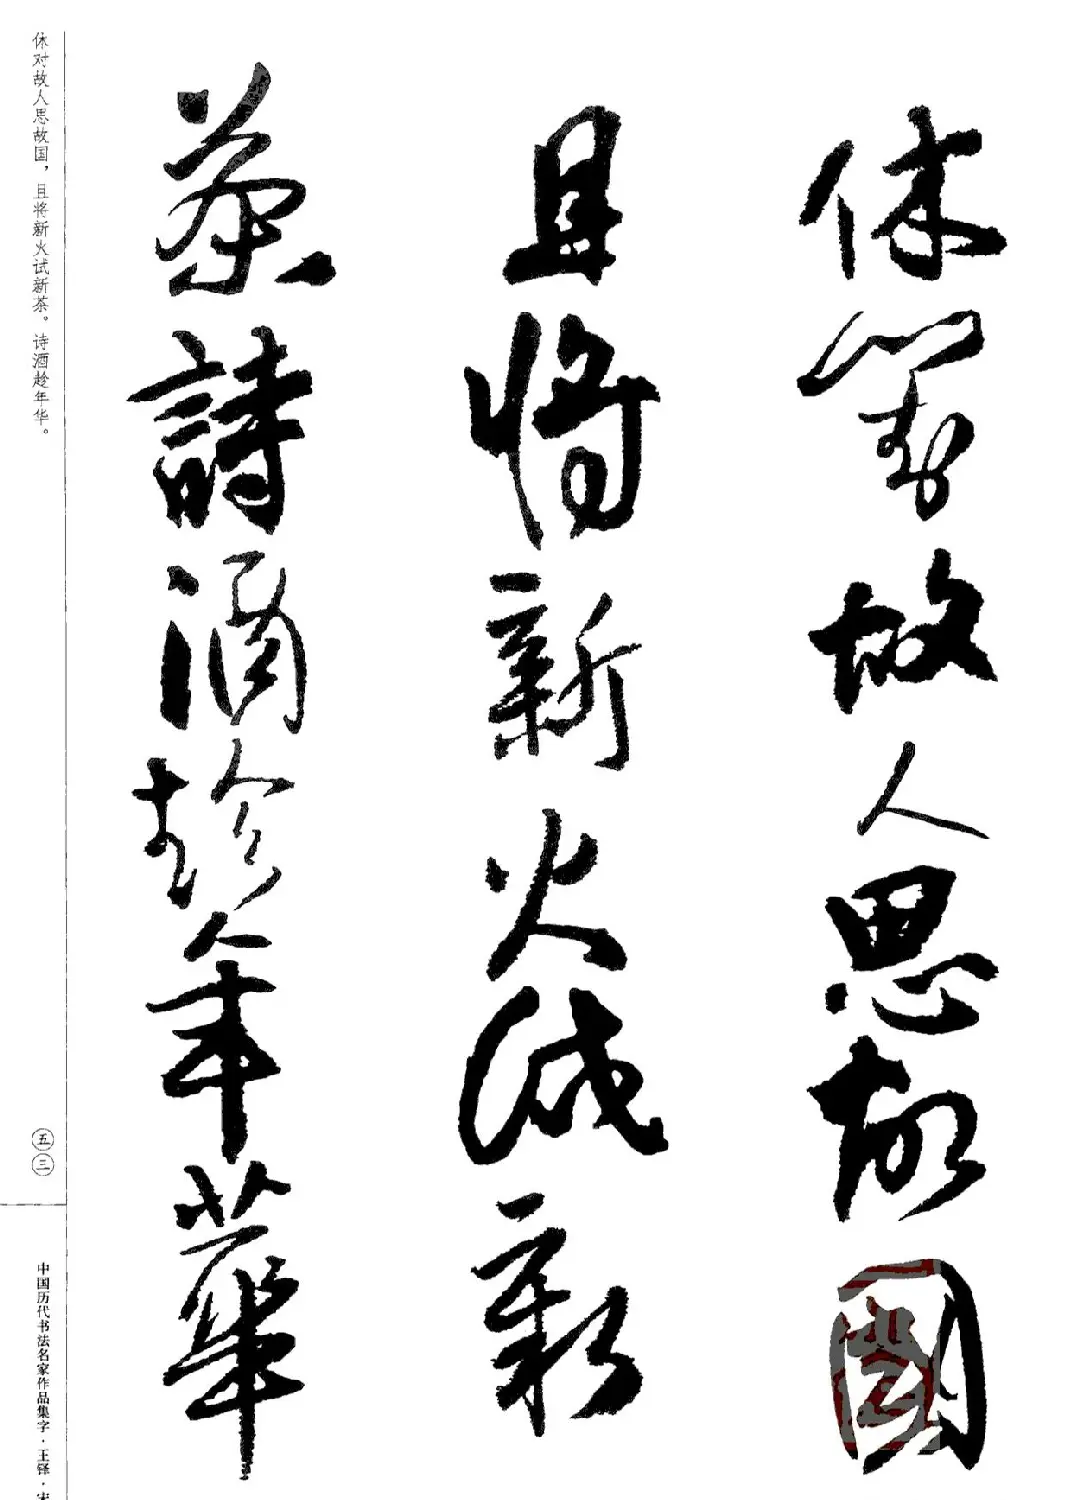 休對故人思故國
且將新火試新
茶詩酒趁年華
休对故人思故国，且将新火试新茶。诗酒趁年华。
五三
中国历代书法名家作品集字·王铎·宋